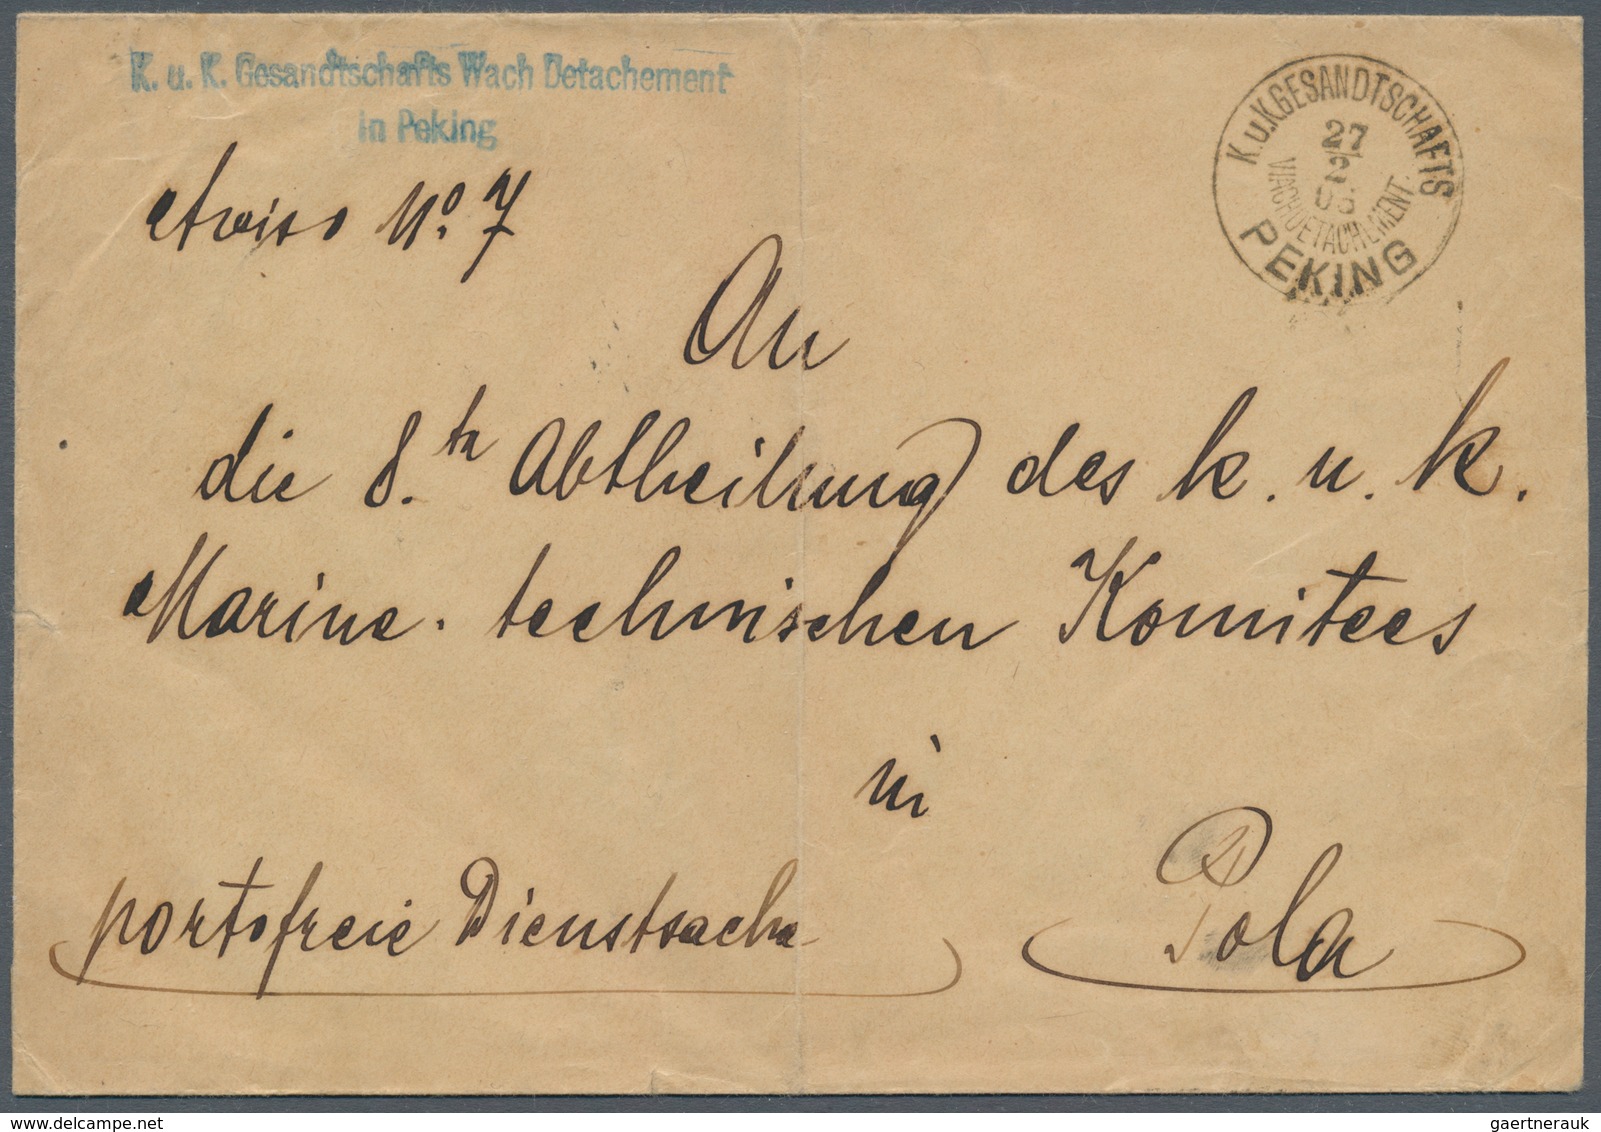 K. u. K. Gesandtschafts Wach Detachement
in Peking
K. u. K. GESANDTSCHAFTS
27
2
WACHDETACHEMENT.
PEKING
Aviso No. 7
An
die 8.te Abtheilung des k. u. k.
Marine-technischen Komitees
in
Pola
portofreie Dienstsache
gaertnerauk